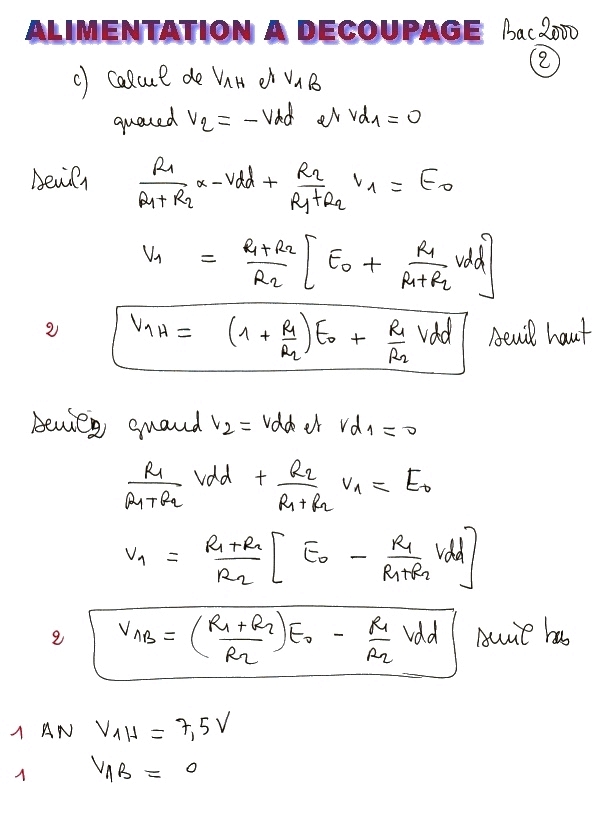 ALIMENTATION A DECOUPAGE Bac 2000
2
c) Calcul de V1H et V1B
quand V2 = -Vdd et Vd1 = 0
Seuil1 R1/(R1+R2) x -Vdd + R2/(R1+R2) V1 = E0
V1 = (R1+R2)/R2 [ E0 + R1/(R1+R2) Vdd ]
2 V1H = (1 + R1/R2) E0 + R1/R2 Vdd seuil haut
Seuil2 quand V2 = Vdd et Vd1 = 0
R1/(R1+R2) Vdd + R2/(R1+R2) V1 = E0
V1 = (R1+R2)/R2 [ E0 - R1/(R1+R2) Vdd ]
2 V1B = ((R1+R2)/R2) E0 - R1/R2 Vdd seuil bas
1 AN V1H = 7,5V
1 V1B = 0